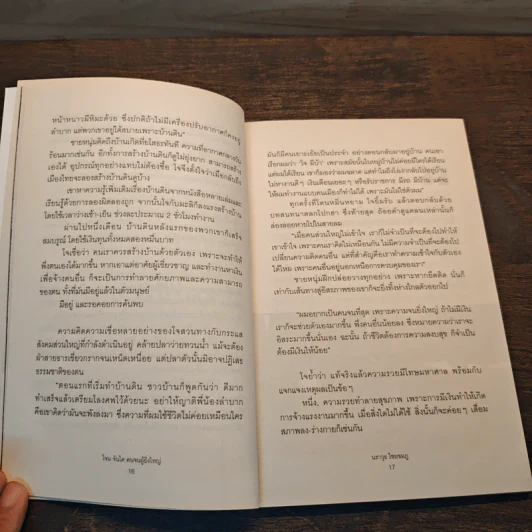 หน้าหนาวมีหิมะด้วย ซึ่งปกติถ้าไม่มีเครื่องปรับอากาศก็คงอยู่
ลำบาก แต่พวกเขาอยู่ได้สบายเพราะบ้านดิน"
ชายหนุ่มคิดถึงบ้านเกิดที่ยโสธรทันที ความที่อากาศกลางวัน
ร้อนมากเช่นกัน อีกทั้งการสร้างบ้านดินก็ดูไม่ยุ่งยาก สามารถสร้าง
เองได้ อุปกรณ์ทุกอย่างแทบไม่ต้องซื้อ โจจึงตั้งใจว่าเมื่อกลับถึง
เมืองไทยจะลองสร้างบ้านดินดูบ้าง
เขาหาความรู้เพิ่มเติมเรื่องบ้านดินจากหนังสือหลายเล่มและ
เรียนรู้ด้วยการลงมือทำ
โดยใช้เวลาว่างเช้า-เย็น ช่วงละประมาณ 2 ชั่วโมงทำงาน
ผ่านไปหนึ่งเดือน บ้านดินหลังแรกของพวกเขาก็เสร็จ
สมบูรณ์ โดยใช้เงินทุนทั้งหมดสองหมื่นบาท
โจเชื่อว่า คนเราควรสร้างบ้านด้วยตัวเอง เพราะจะทำให้
พึ่งตนเองได้มากขึ้น หากเอาแต่อาศัยผู้เชี่ยวชาญ และทำงานหาเงิน
เพื่อจ้างคนอื่น ก็จะเป็นการทำลายศักยภาพและความสามารถ
ของตน ทั้งที่มันมีอยู่แล้วในตัวมนุษย์
มีอยู่ และรอคอยการค้นพบ
ความคิดความเชื่อหลายอย่างของโจสวนทางกับกระแส
สังคมส่วนใหญ่ที่กำลังดำเนินอยู่ คล้ายปลาว่ายทวนน้ำ แม้จะต้อง
ฝ่าสายธารเชี่ยวกรากจนเหน็ดเหนื่อย แต่ปลาตัวนั้นมิอาจปฏิเสธ
ธรรมชาติของตน
"ตอนแรกที่เริ่มทำบ้านดิน ชาวบ้านก็พูดกันว่า ดีมาก
ทำเสร็จแล้วเตรียมโลงศพไว้ด้วยนะ อย่าให้ญาติพี่น้องลำบาก
คือเขาคิดว่ามันจะพังลงมา ซึ่งความที่ผมใช้ชีวิตไม่ค่อยเหมือนใคร
โจน จันได คนจนผู้ยิ่งใหญ่
16
มันก็มีคนเขาจะเย้ยเป็นประจำ อย่างตอนกลับมาอยู่บ้าน คนเขา
เรียกผมว่า 'โจ ผีบ้า' เพราะสมัยนั้นในหมู่บ้านไม่ค่อยมีใครได้เรียน
แต่ผมได้เรียน เขาก็มองว่าผมฉลาด แต่ทำไมถึงโง่กลับไปอยู่บ้าน
ไม่หางานดีๆ เงินเดือนเยอะๆ หรือรับราชการ มีรถ มีบ้าน แต่จะ
ให้ผมทำงานแบบคนเมืองก็ทำไม่ได้ เพราะมันไม่ใช่ตัวผม"
ทุกครั้งที่โดนหมิ่นหยาม โจยิ้มรับ แล้วตอบกลับด้วย
บทสนทนาตลกโปกฮา ซึ่งท้ายสุด ถ้อยคำดูแคลนเหล่านั้นก็
ล่องลอยหายไปในสายลม
"เมื่อคนส่วนใหญ่ไม่เข้าใจ เราก็ไม่จำเป็นที่จะต้องไปทำให้
เขาเข้าใจ เพราะคนเราคิดไม่เหมือนกัน ไม่มีความจำเป็นที่จะต้องไป
เปลี่ยนความคิดคนอื่น แต่ที่สำคัญคือเราทำความเข้าใจกับตัวเอง
ได้ไหม เพราะคนอื่นอยู่นอกเหนือการควบคุมของเรา"
ชายหนุ่มฝึกปล่อยวางทุกอย่าง เพราะหากยึดติด นั่นก็
เท่ากับเส้นทางสู่อิสรภาพของเขาก็จะยิ่งทิ้งห่างไกลตัวออกไป
"ผมอยากเป็นคนที่สุด เพราะความจนยิ่งใหญ่ ถ้าไม่มีเงิน
เราก็จะช่วยตัวเองมากขึ้น พึ่งคนอื่นน้อยลง ซึ่งหมายความว่าเราจะ
อิสระมากขึ้นนั่นเอง ฉะนั้น ถ้าชีวิตต้องการความสงบสุข ก็จำเป็น
ต้องมีเงินให้น้อย"
โจย้ำว่า แท้จริงแล้วความรวยมีโทษมหาศาล พร้อมกับ
แจกแจงเหตุผลเป็นข้อๆ
หนึ่ง, ความรวยทำลายสุขภาพ เพราะการมีเงินทำให้เกิด
การจ้างแรงงานมากขึ้น เมื่อสิ่งใดไม่ได้ใช้ สิ่งนั้นก็จะค่อยๆ เสื่อม
สภาพลง-ร่างกายก็เช่นกัน
17